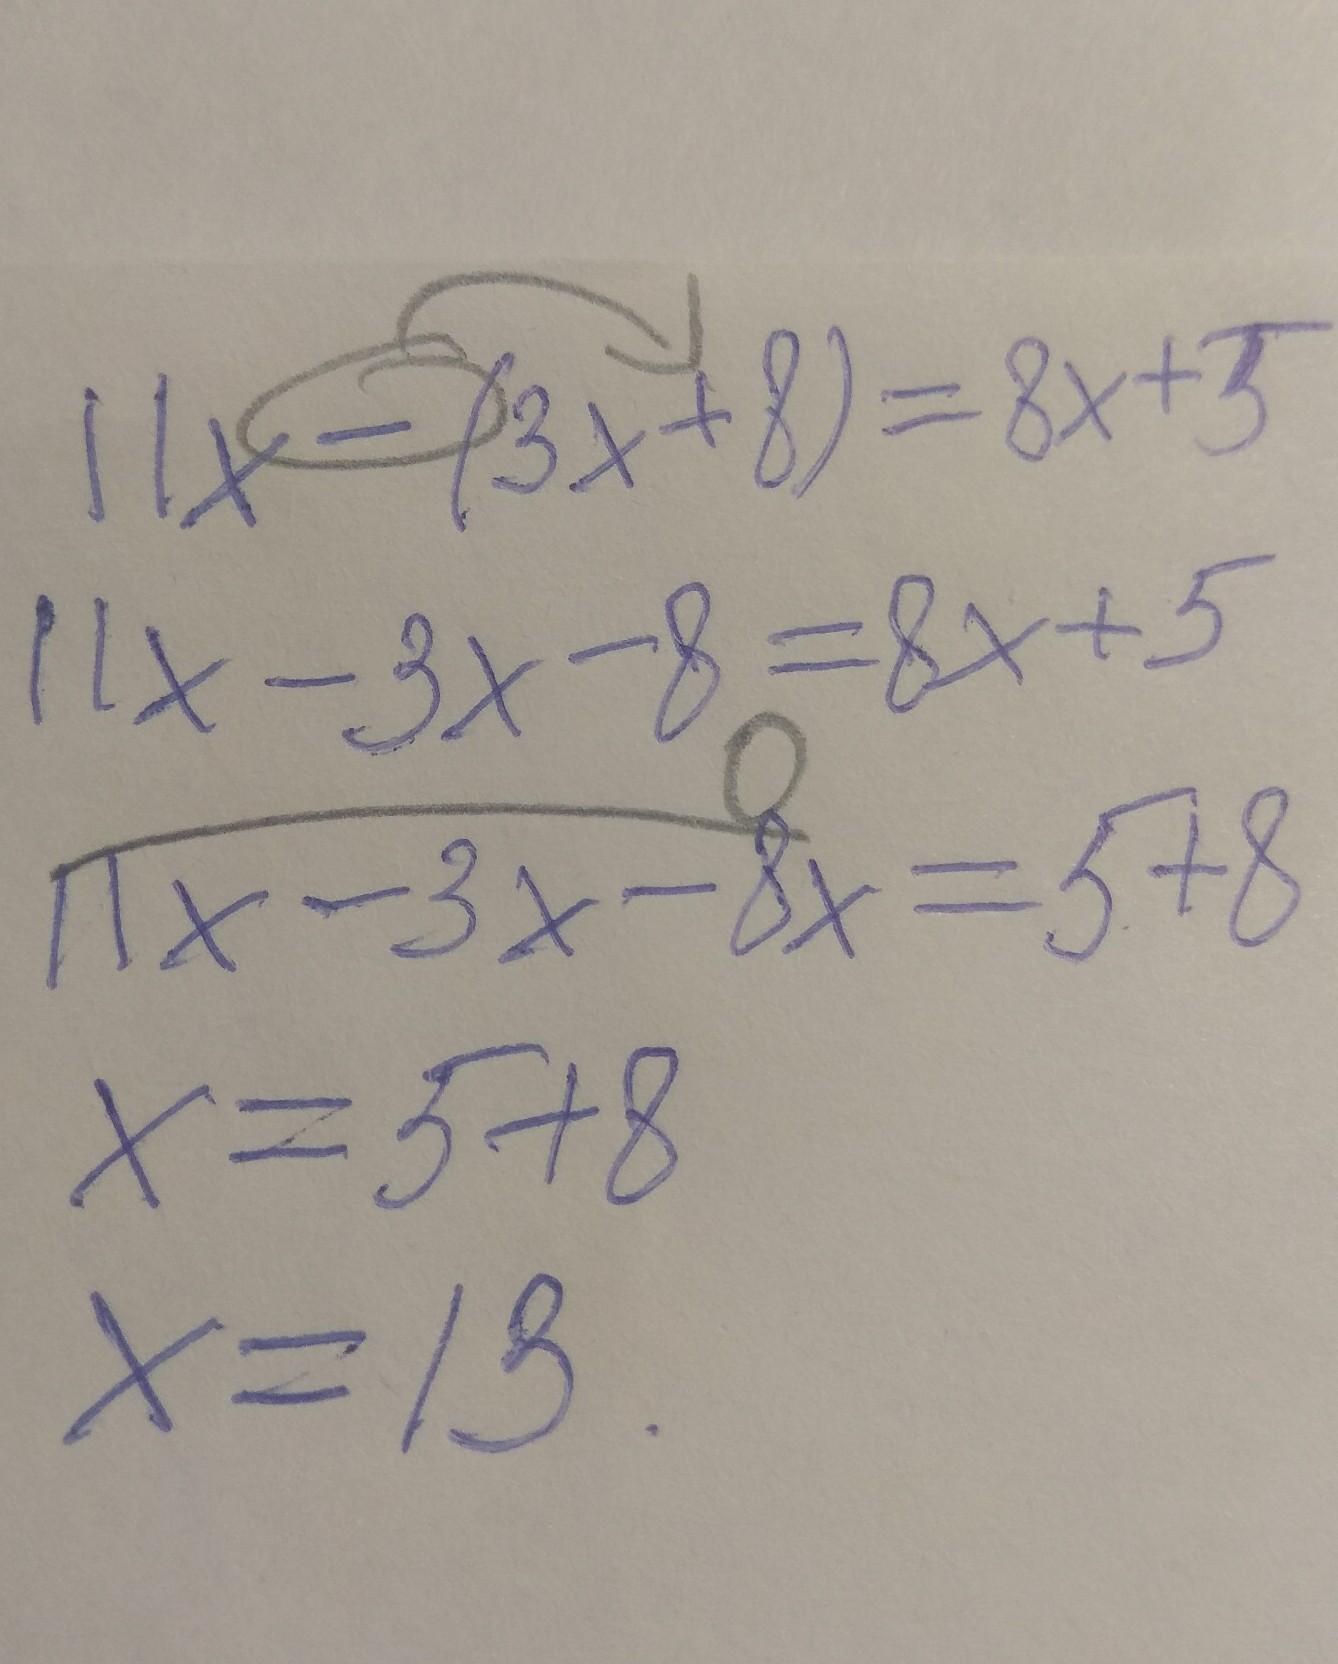 11x-(3x+8)=8x+5
11x-3x-8=8x+5
0
11x-3x-8x=5+8
x=5+8
x=13.